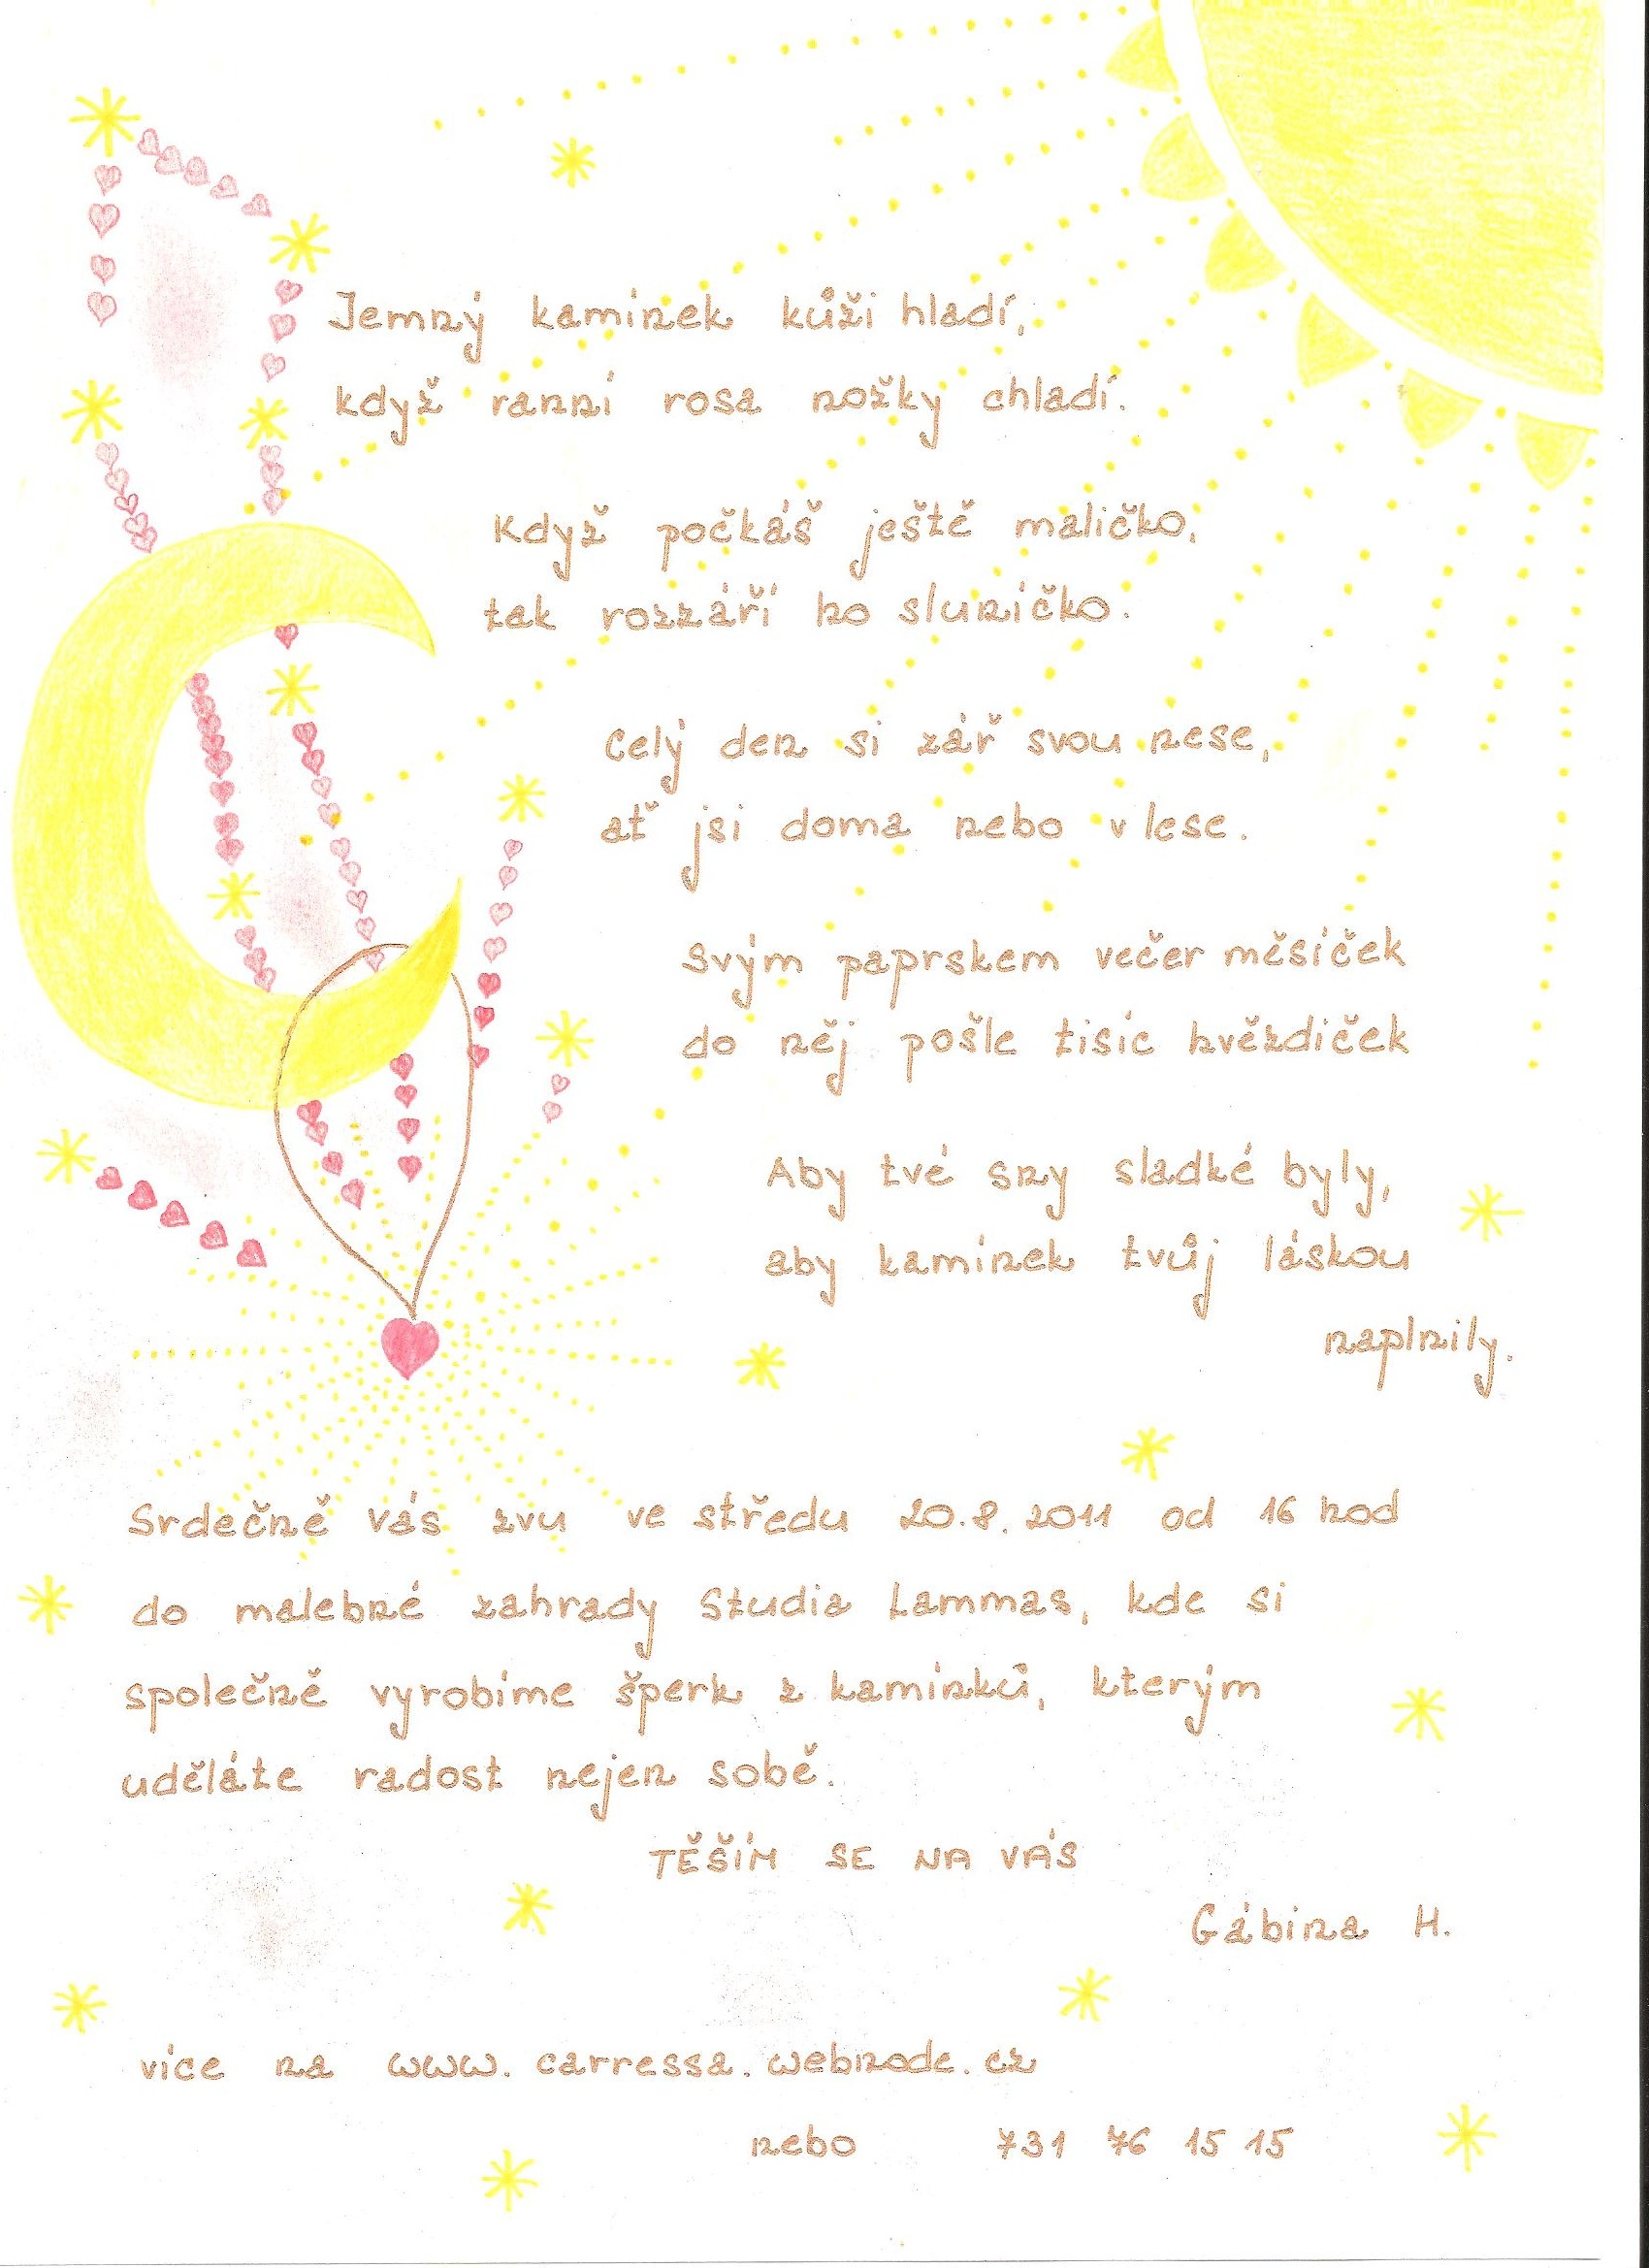 Jemný kamínek kůži hladí,
když ranní rosa nožky chladí.
Když počkáš ještě maličko,
tak rozzáří ho sluníčko.
Celý den si zář svou nese,
ať jsi doma nebo v lese.
Svým paprskem večer měsíček
do něj pošle tisíc hvězdiček
Aby tvé sny sladké byly,
aby kamínek tvůj láskou
naplnily.
Srdečně vás zvu ve středu 20.8.2011 od 16 hod
do malebné zahrady Studia Lammas, kde si
společně vyrobíme šperk z kamínků, kterým
uděláte radost nejen sobě.
TĚŠÍM SE NA VÁS
Gábina H.
více na www.carressa.webnode.cz
nebo 731 76 15 15